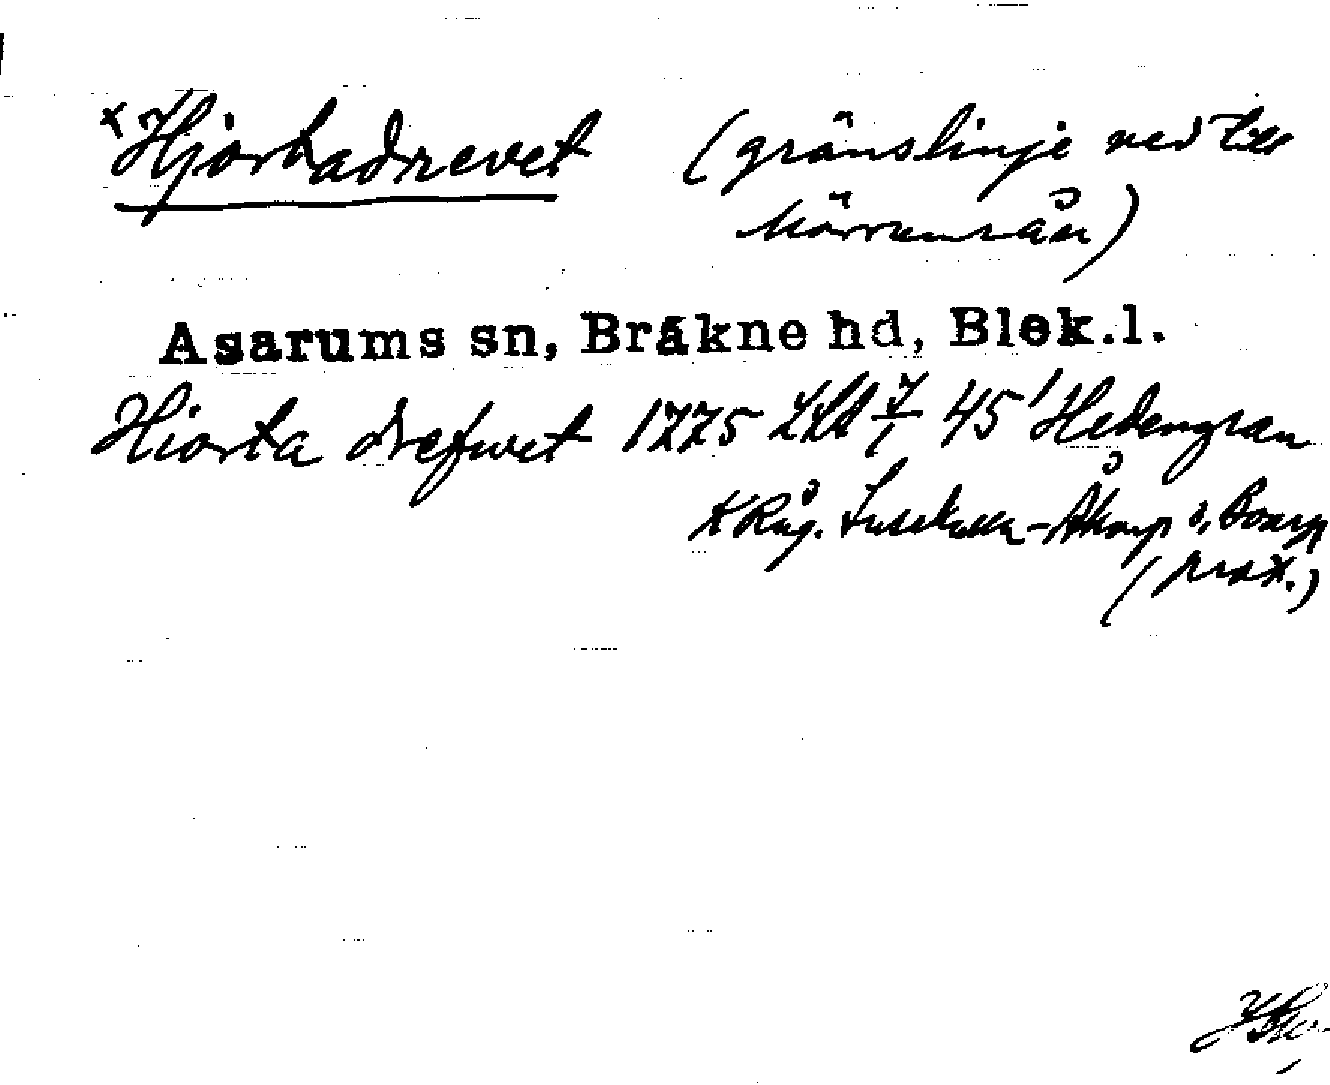 x Hjortadrevet (gränslinje ned till
Mörrumsån)
Asarums sn, Bräkne hd, Blek.l.
Hiorta drefwet 1775 LSA 7/1 45' Hedengran
K Råg. - Åkarp
(prot.)